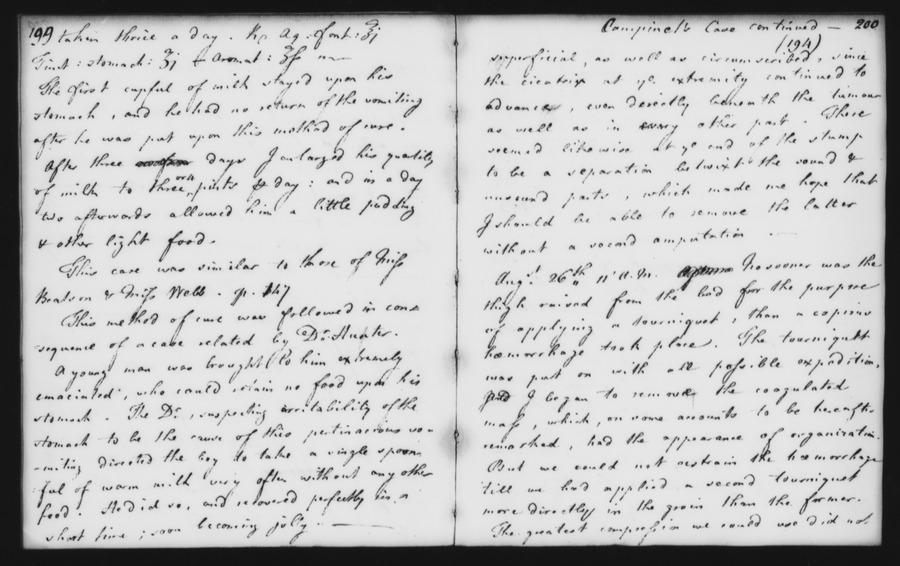 199 taken thrice a day. Rx Aq. font: ℥j
Tinct: stomach: ʒj & Aromat: ʒſs
The first cupful of milk stayed upon his
stomach, and he had no return of the vomiting
after he was put upon this method of cure.
After three days I enlarged his quantity
of milk to three pints a day: and in a day
or
two afterwards allowed him a little pudding
& other light food.
This case was similar to those of Miſs
Beatson & Miſs Webb. p. 147
This method of cure was followed in con=
sequence of a case related by Dr. Hunter.
A young man was brought to him extremely
emaciated, who could retain no food upon his
stomach. The Dr., suspecting irritability of the
stomach to be the cause of this pertinacious vo=
=miting directed the boy to take a single spoon=
ful of warm milk very often without any other
food. He did so, and recovered perfectly in a
short time; soon becoming jolly.
Campinel's Case continued — 200
(194)
superficial, as well as circumscribed, since
the cicatrix at ye. extremity continued to
advance, even directly beneath the tumour
as well as in every other part. There
seemed likewise at ye end of the stump
to be a separation betwixt the sound &
unsound parts, which made me hope that
I should be able to remove the latter
without a second amputation.
Augt. 26th 11 A.M. No sooner was the
thigh raised from the bed for the purpose
of applying a tourniquet, than a copious
hæmorrhage took place. The tourniquet
was put on with all poſsible expedition,
and I began to remove the coagulated
maſs, which, on some accounts to be hereafter
remarked, had the appearance of organization.
But we could not restrain the hæmorrhage
till we had applied a second tourniquet
more directly in the groin than the former.
The greatest compreſsion we could use did not